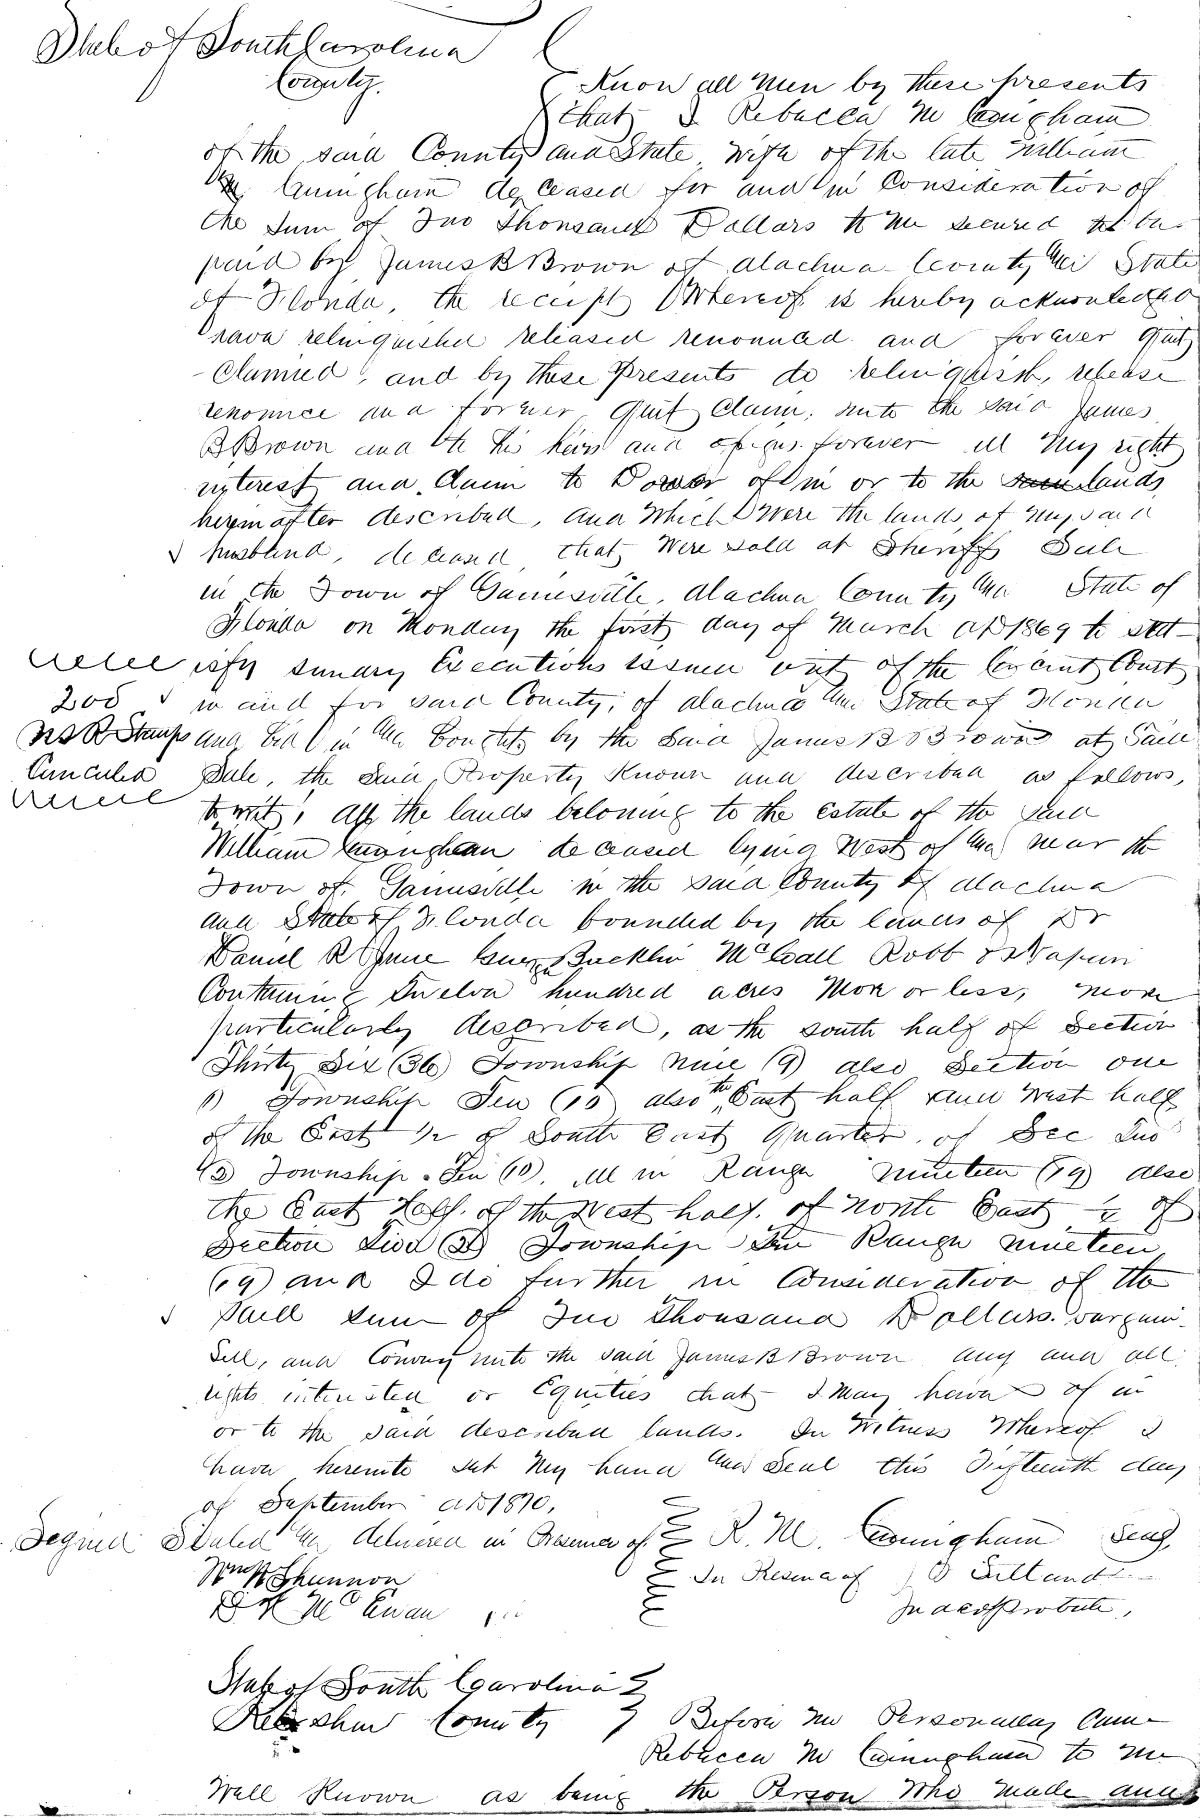 State of South Carolina
County.
Know all Men by these presents
that I Rebecca M Cuningham
of the said County and State, wife of the late William
Cuningham deceased for and in Consideration of
the Sum of Two Thousand Dollars to me secured to be
paid by James B Brown of Alachua County and State
of Florida, the receipt Whereof is hereby acknowledged
have relinquished released renounced and forever Quit
Claimed, and by these Presents do relinquish, release
renounce and forever Quit Claim, unto the said James
B Brown and to his heirs and assigns forever all My right
interest and Claim to Dower of in or to the lands
hereinafter described, and Which Were the lands of my said
husband, deceased, that Were sold at Sheriffs Sale
in the Town of Gainesville, Alachua County and State of
Florida on Monday the first day of March AD 1869 to sat-
isfy sundry Executions issued out of the Circuit Court
200
in and for said County, of Alachua and State of Florida
US R Stamps
and bid in and bought by the Said James B Brown at Said
Canceled
Sale, the Said Property Known and described as follows,
to wit, All the lands beloning to the Estate of the said
William Cuningham deceased lying West of and near the
Town of Gainesville in the said County of Alachua
and State of Florida bounded by the lands of Dr
Daniel R Bucklin McCall Robb &
Containing Twelve hundred acres More or less, more
particularly described, as the south half of Section
Thirty Six (36) Township Nine (9) also Section one
(1) Township Ten (10) also the East half and West half
of the East 1/2 of South East Quarter of Sec Two
(2) Township Ten (10), All in Range nineteen (19) also
the East Half of the West half of North East ¼ of
Section Two (2) Township Ten Range nineteen
(19) and I do further in Consideration of the
said sum of Two Thousand Dollars bargain
Sell, and Convey unto the said James B Brown any and all
rights interested or Equities that I May have of in
or to the said described lands. In Witness Whereof I
have hereunto set My hand and Seal this Fifteenth day
of September AD 1870.
Signed Sealed and delivered in Presence of
R. M. Cuningham Seal
Wm Shannon
In Presence of J D
D McEwan
Judge of Probate,
State of South Carolina
Kershaw County
Before Me Personally Came
Rebecca M Cuningham to me
Well Known as being the Person Who Made and